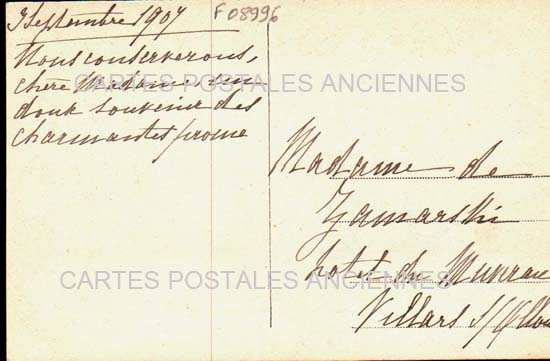 3 Septembre 1907
F 08996
Nous conserverons,
chère Madame, un
doux souvenir des
charmantes prome
CARTES POSTALES ANCIENNES
Madame de
Zamarski
hotel du Muveran
Villars s/Ollon
CARTES POSTALES ANCIENNES